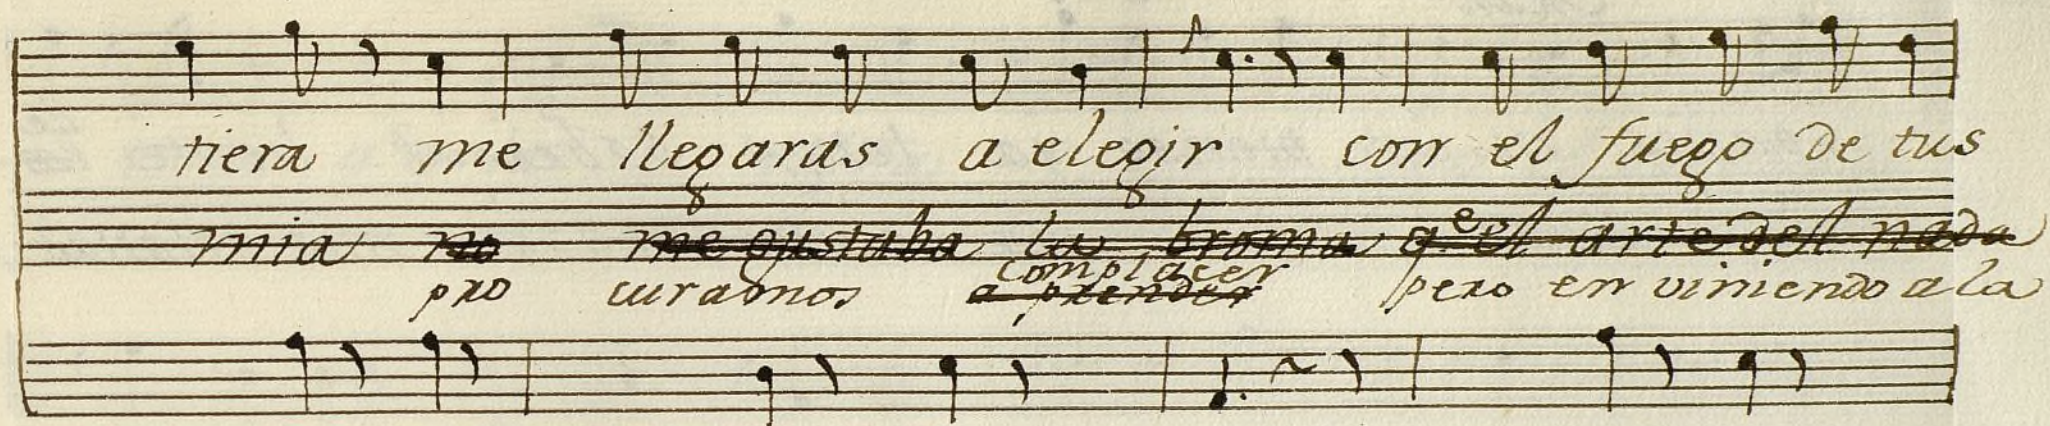 tiera me llegaras a elegir con el fuego de tus
mia no me gustaba la broma q.e el arte del nada
complacer
pro curamos a prender pero en viniendo a la